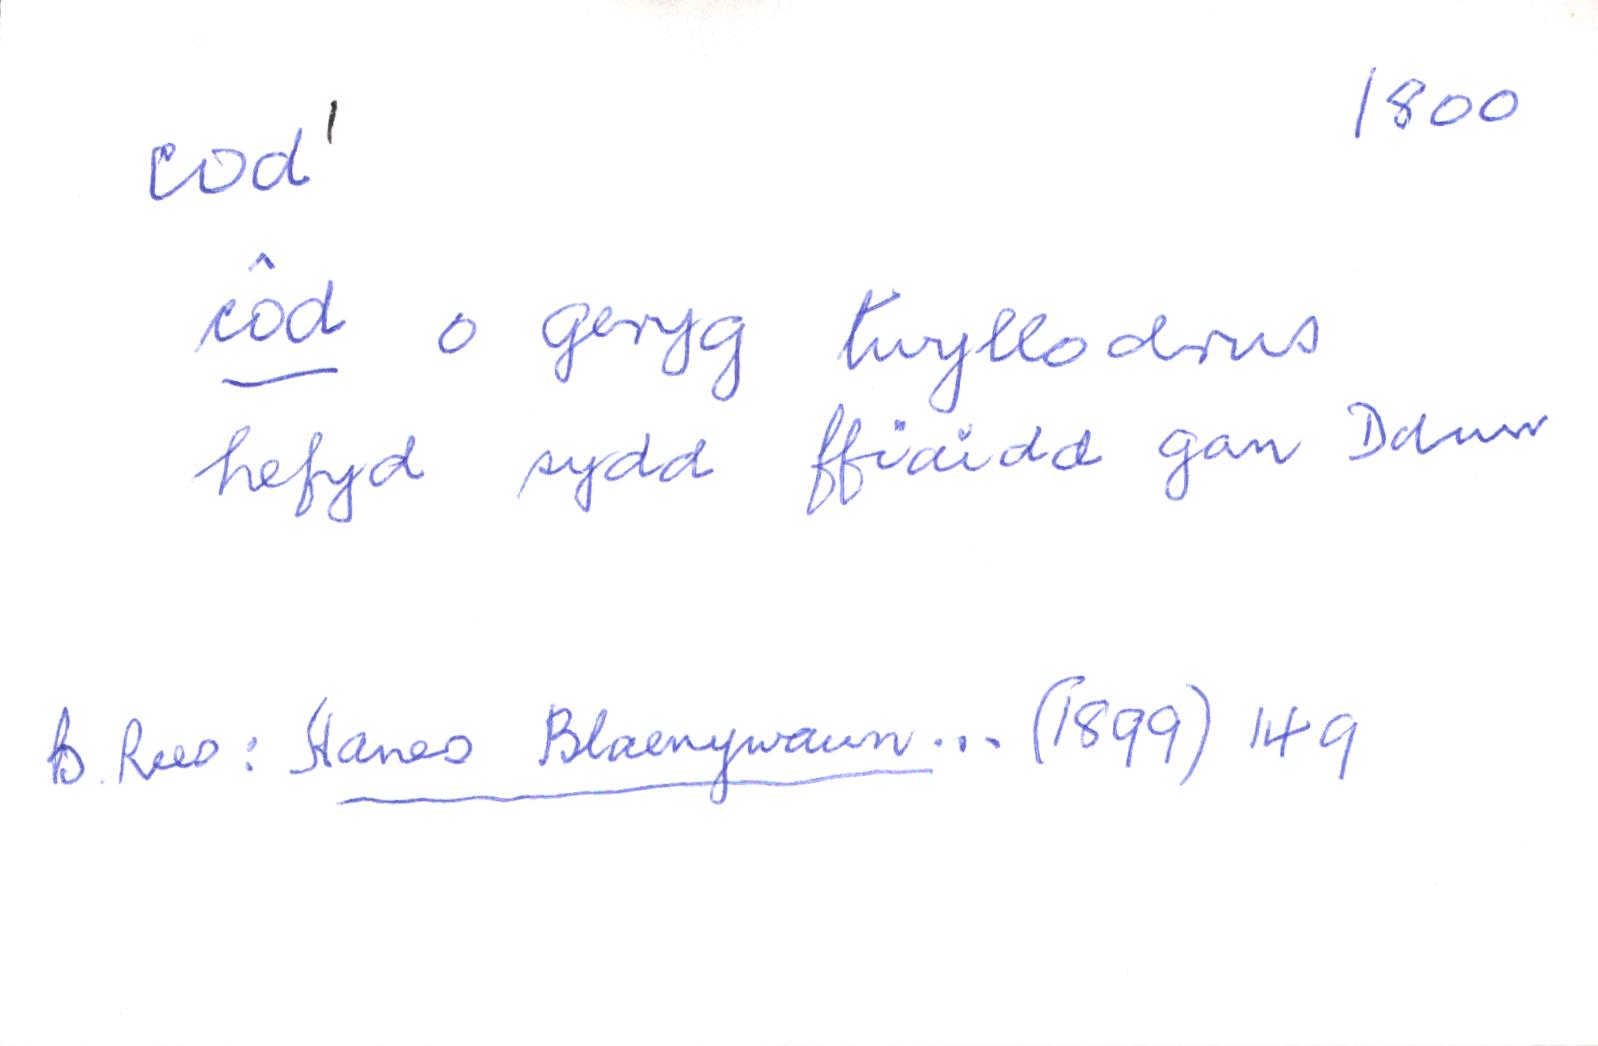 1800
cod¹
côd o geryg twyllodrus
hefyd sydd ffiaidd gan Dduw
B. Rees: Hanes Blaenywaun... (1899) 149